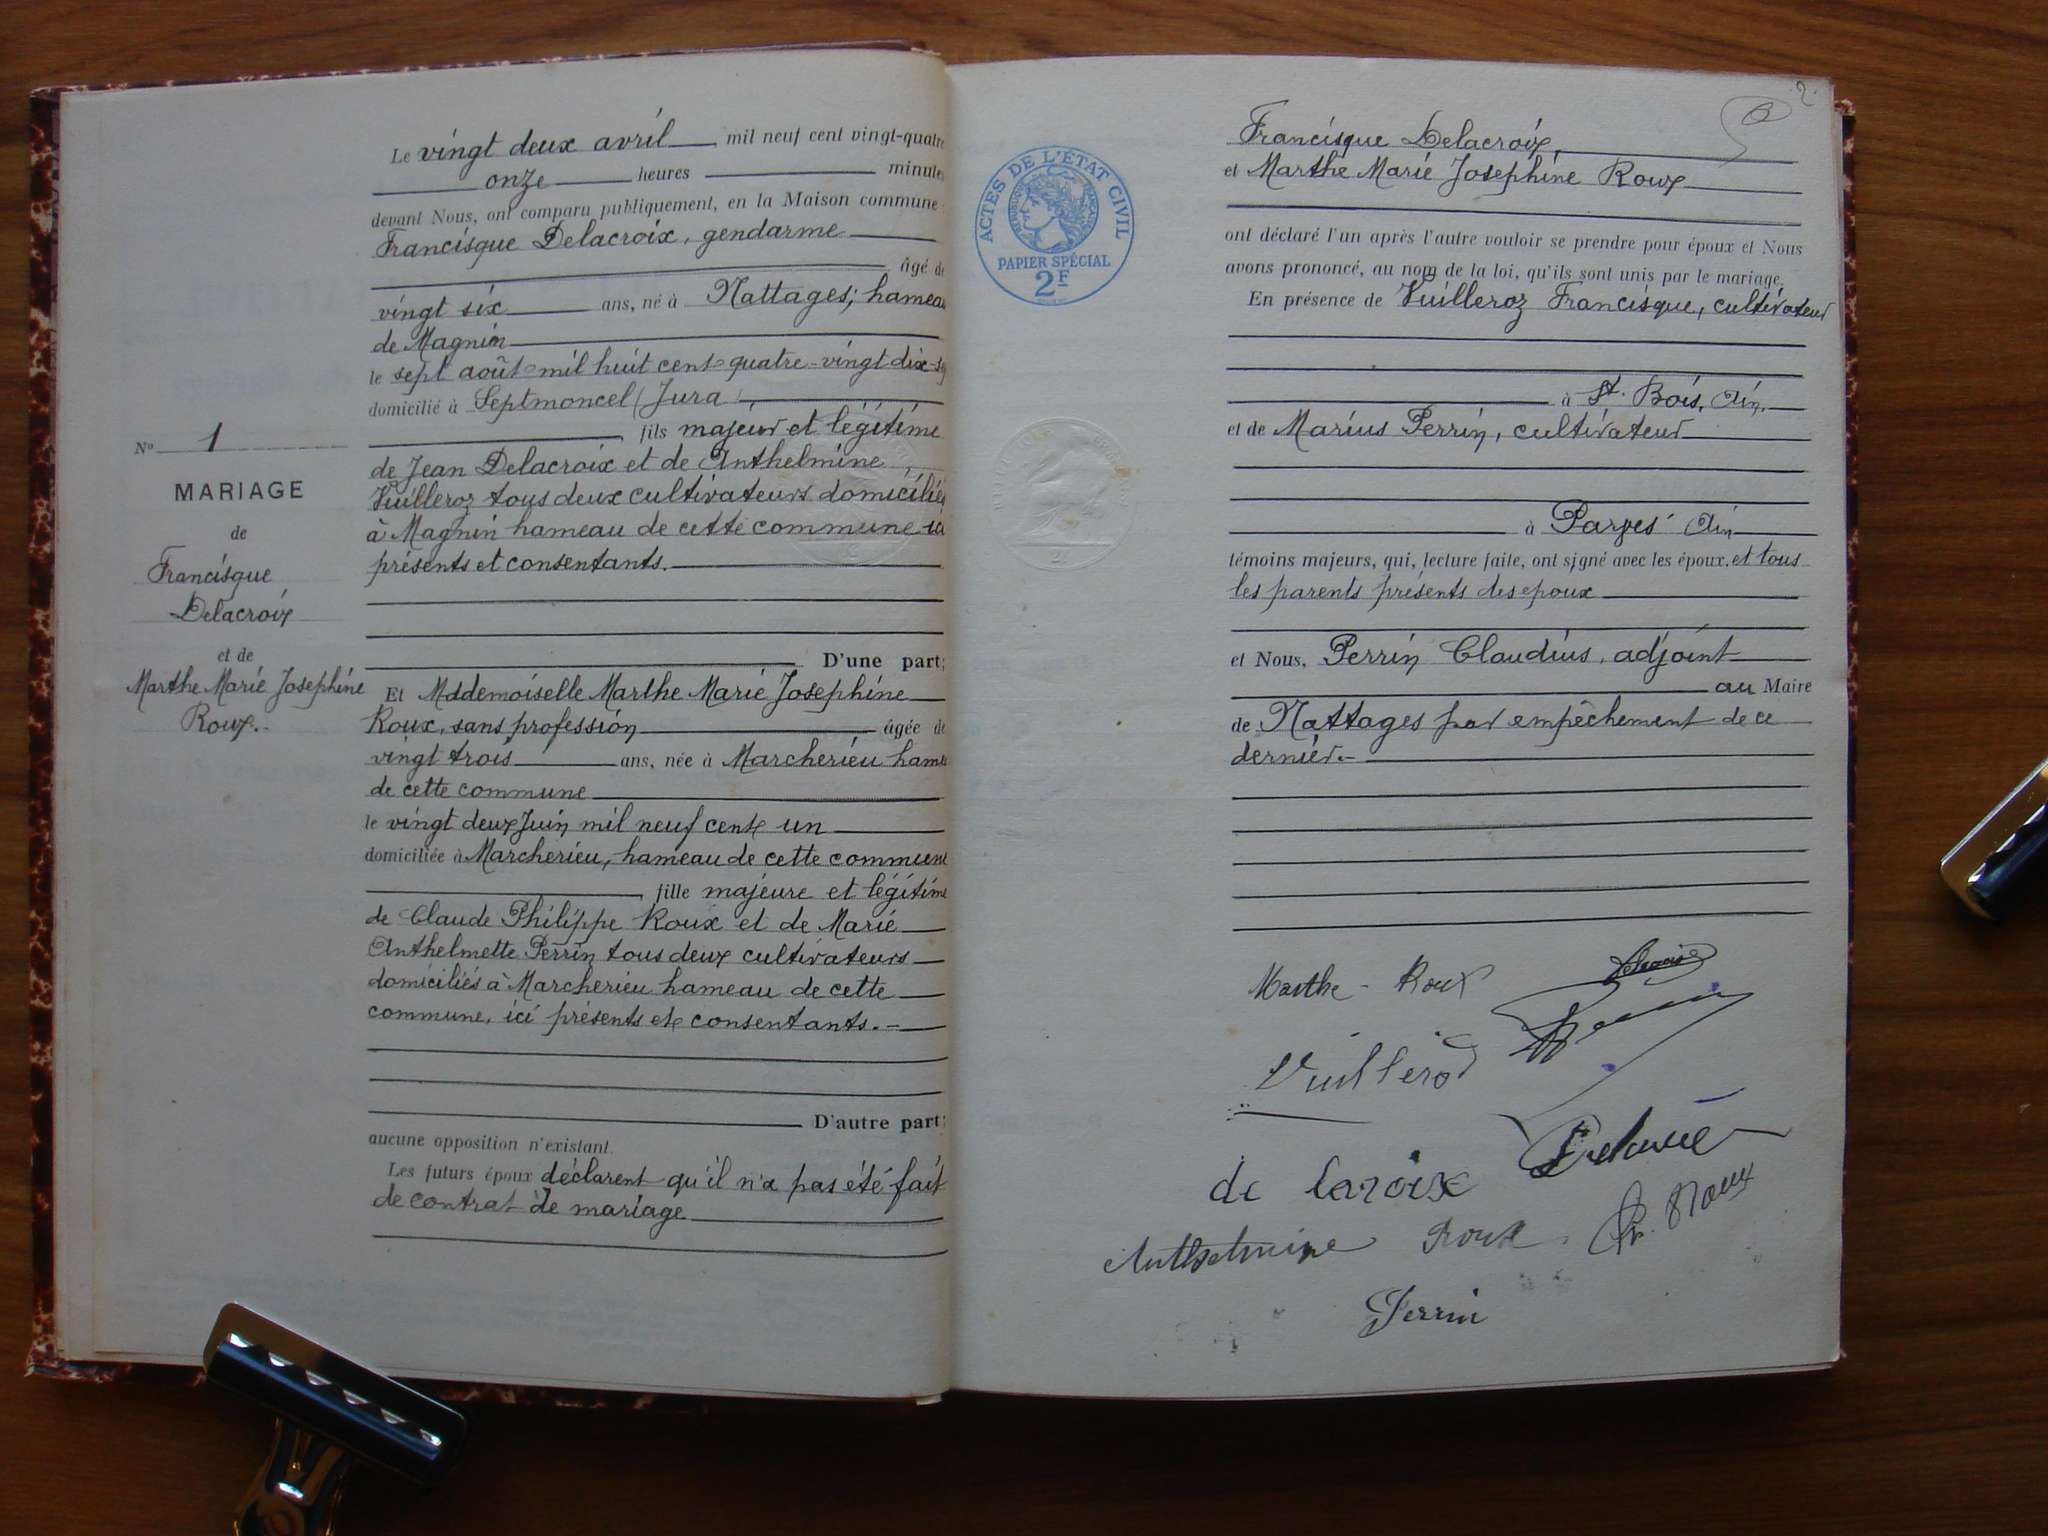 Le vingt deux avril mil neuf cent vingt-quatre
onze heures minutes
devant Nous, ont comparu publiquement, en la Maison commune :
Francisque Delacroix, gendarme
âgé de
vingt six ans, né à Nattages, hameau
de Magnin
le sept août mil huit cent quatre-vingt dix-sept
domicilié à Septmoncel (Jura)
, fils majeur et légitime
de Jean Delacroix et de Anthelmine
Vuilleroz tous deux cultivateurs domiciliés
à Magnin hameau de cette commune ici
présents et consentants.
D'une part;
Nº 1
MARIAGE
de
Francisque
Delacroix
et de
Marthe Marie Josephine
Roux.
Et Mademoiselle Marthe Marie Josephine
Roux, sans profession âgée de
vingt trois ans, née à Marcherieu hameau
de cette commune
le vingt deux Juin mil neuf cent un
domiciliée à Marcherieu, hameau de cette commune
, fille majeure et légitime
de Claude Philippe Roux et de Marie
Anthelmette Perrin tous deux cultivateurs
domiciliés à Marcherieu hameau de cette
commune, ici présents et consentants.
D'autre part;
aucune opposition n'existant.
Les futurs époux déclarent qu'il n'a pas été fait
de contrat de mariage
2.
ACTES DE L'ÉTAT CIVIL
PAPIER SPÉCIAL
2F
Francisque Delacroix,
et Marthe Marie Josephine Roux
ont déclaré l'un après l'autre vouloir se prendre pour époux et Nous
avons prononcé, au nom de la loi, qu'ils sont unis par le mariage.
En présence de Vuilleroz Francisque, cultivateur
à St. Bois, Ain.
et de Marius Perrin, cultivateur
à Parves Ain
témoins majeurs, qui, lecture faite, ont signé avec les époux. et tous
les parents présents des epoux
et Nous, Perrin Claudius, adjoint
au Maire
de Nattages par empêchement de ce
dernier.
Marthe - Roux
Vuillerod
de laroix
Anthelmine Roux
Perrin